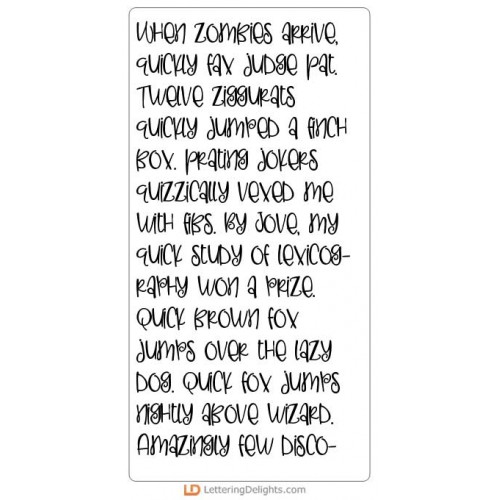 When zombies arrive,
quickly fax judge pat.
Twelve ziggurats
quickly jumped a finch
box. Prating jokers
quizzically vexed me
with fibs. By Jove, my
quick study of lexicog-
raphy won a prize.
Quick brown fox
jumps over the lazy
dog. Quick fox jumps
nightly above wizard.
Amazingly few disco-
LD LetteringDelights.com